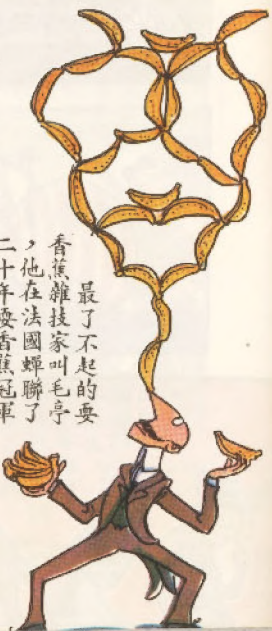 最了不起的耍
香蕉雜技家叫毛亭
，他在法國蟬聯了
二十年耍香蕉冠軍